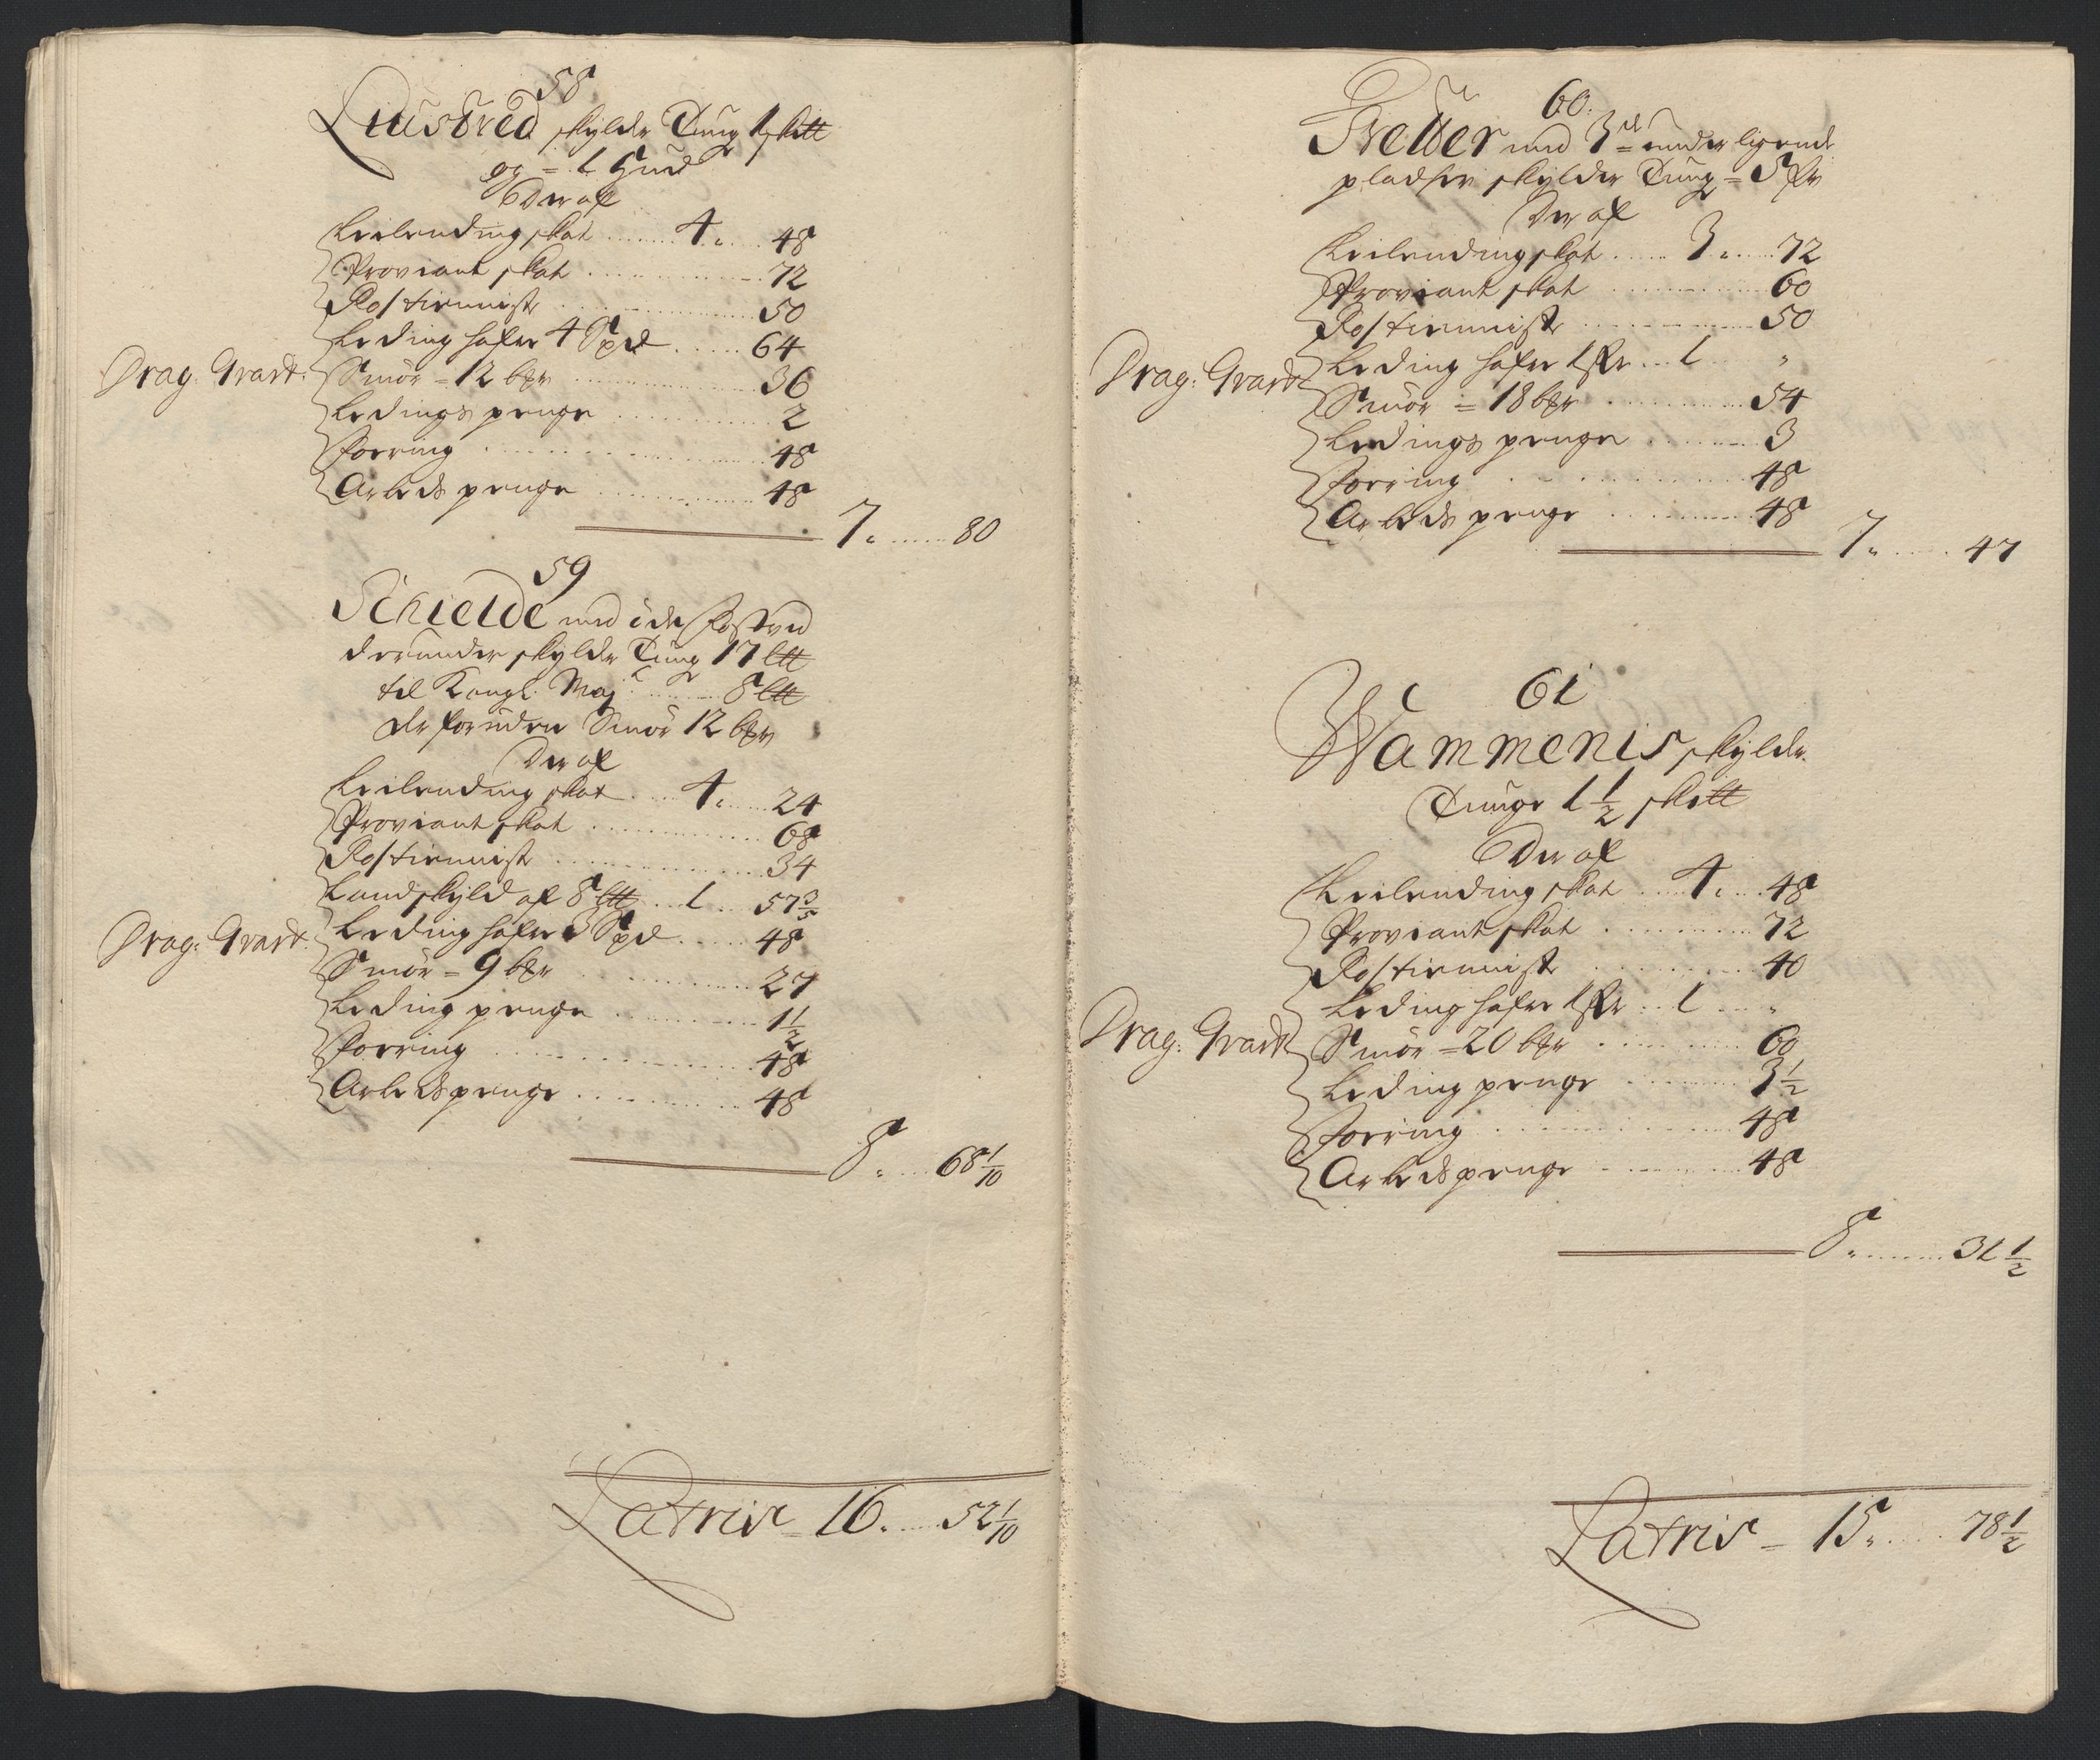 58
Liusbred skylder Tung 1 skltt
og = 1 Hud
Deraf
Leilending skat ..... 4. .... 48
Proviant skat ..... 72
Rostienniste ..... 50
Leding hafre 4 Spd ..... 64
Drag: Qvart. Smör = 12 bpr ..... 36
Ledings penge ..... 2
Foering ..... 48
Arbeds penge ..... 48
7. .... 80
59
Schielde med
derunder skylder Tung 17 ltt
til Kongl: Maj: ..... 8 ltt
der foruden Smör 12 bpr
Deraf
Leilending skat ..... 4. .... 24
Proviant skat ..... 68
Rostienniste ..... 34
Landskyld af 8 ltt ... 1 ... 57 3/5
Drag: Qvart. Leding hafre 3 Spd ..... 48
Smör = 9 bpr ..... 27
Leding penge ..... 1 1/2
Foering ..... 48
Arbeds penge ..... 48
8. .... 68 1/10
Latris = 16. .... 52 1/10
60.
med 3de underligende
pladser skylder Tung = 5 pr
Deraf
Leilending skat ..... 3. .... 72
Proviant skat ..... 60
Rostienniste ..... 50
Drag: Qvart Leding hafre 1 ... 1 "
Smör = 18 bpr ..... 54
Ledings penge ..... 3
Foering ..... 48
Arbeds penge ..... 48
7. .... 47
61
Wammenis skylder
Tunge 1 1/2 skltt
Deraf
Leilending skat ..... 4. .... 48
Proviant skat ..... 72
Rostienniste ..... 40
Leding hafre 1 ... 1 "
Drag: Qvart Smör = 20 bpr ..... 60
Leding penge ..... 3 1/2
Foering ..... 48
Arbeds penge ..... 48
8. .... 31 1/2
Latris = 15. .... 78 1/2